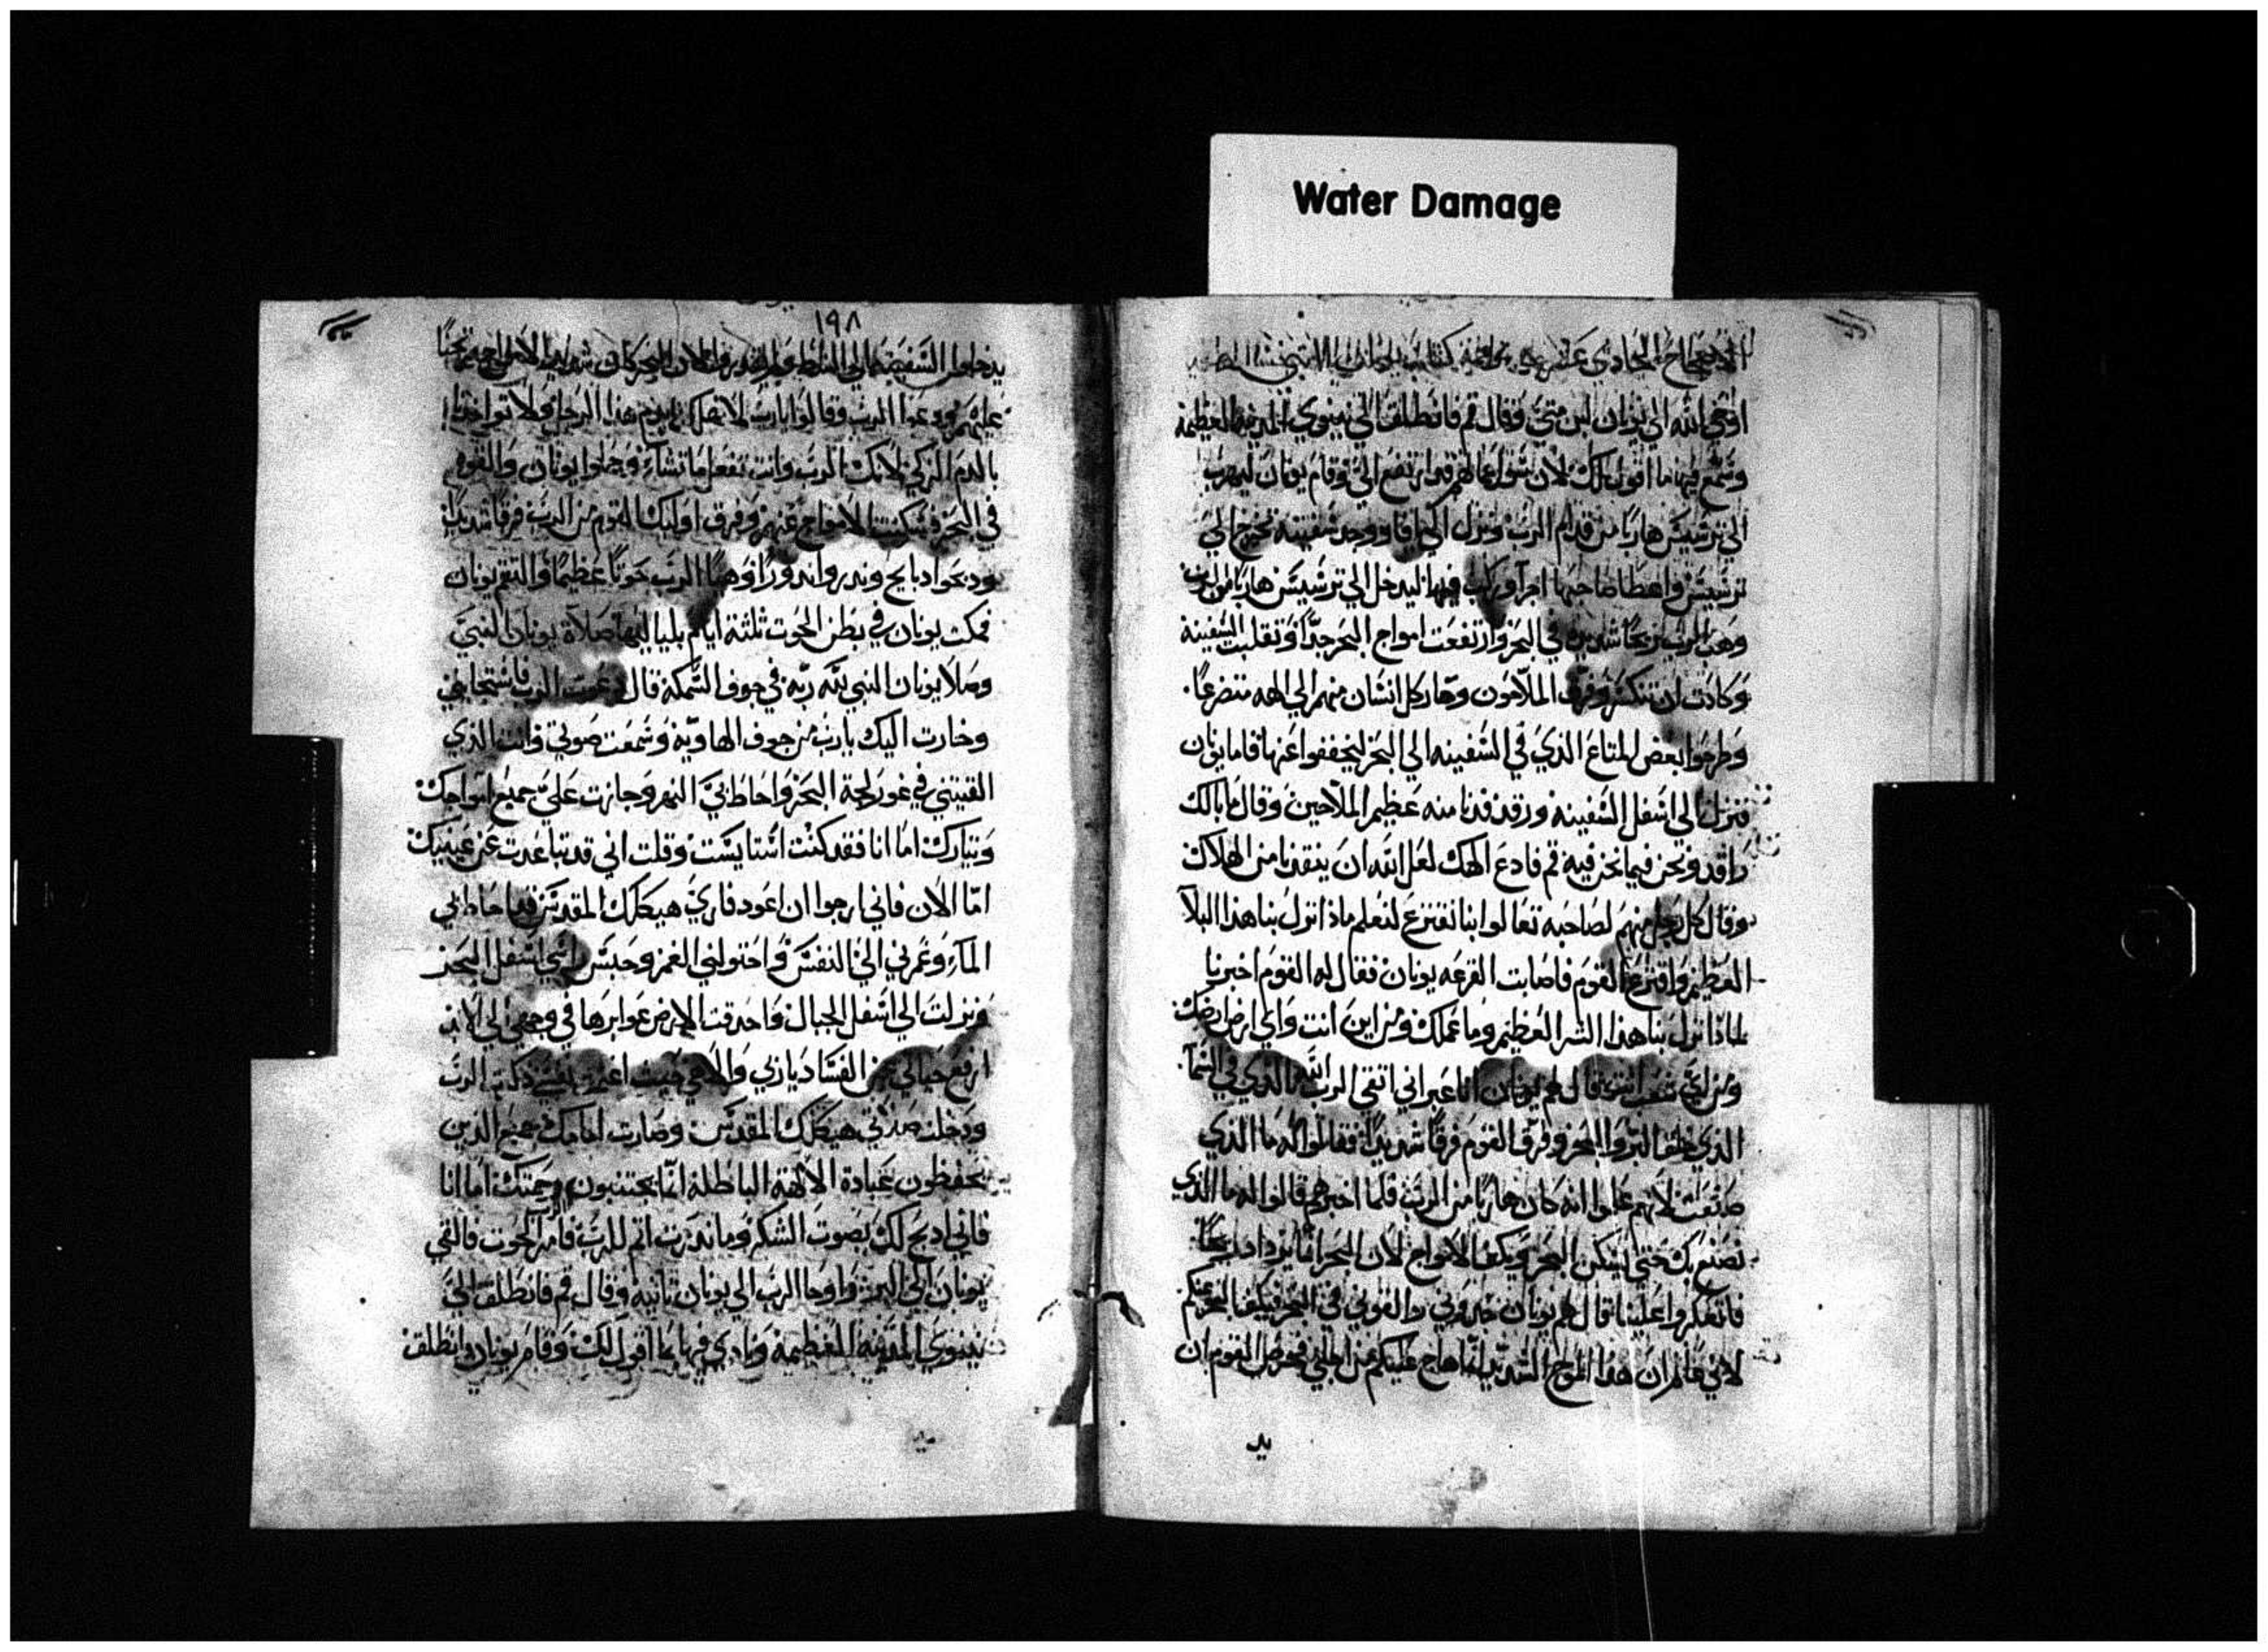 Water Damage
اوحي الله الي يونان ابن متي وقال قم فانطلق الي نينوي المدينه العظيمه
الي ترشيش هاربا من قدام الرب ونزل الي يافا ووجد سفينه تخرج الي
ترشيش واعطا صاحبها اجرا وركب فيها ليدخل الي ترشيش هاربا من الرب
وهب الرب ريحا شديده في البحر وارتفعت امواج البحر جدا وتقلبت السفينة
وكادت ان تنكسر وفرق الملاحون وصار كل انسان منهم الي الهه متضرعا
وطرحوا بعض المتاع الذي في السفينه الي البحر ليخففوا عنها فاما يونان
فنزل الي اسفل السفينه ورقد فدنا منه عظيم الملاحين وقال ما بالك
راقد ونحن فيما نحن فيه قم فادع الهك لعل الله ان ينقذنا من الهلاك
وقال كل رجل منهم لصاحبه تعالوا بنا نقترع لنعلم ماذا نزل بنا هذا البلا
العظيم واقترع القوم فاصابت القرعه يونان فقال له القوم اخبرنا
لماذا نزل بنا هذا الشر العظيم وما عملك ومن اين انت واي ارض ارضك
ومن اي شعب انت قال لهم يونان انا عبراني اتقي الرب اله الذي في السما
الذي خلق البر والبحر وفرق القوم فرقا شديدا فقالوا له ما الذي
صنعت لانهم علموا انه كان هاربا من الرب فلما اخبرهم قالوا له ما الذي
نصنع بك حتي يسكن البحر وتكف الامواج لان البحر
قال لهم يونان خذوني والقوني في البحر فيكف البحر عنكم
لاني عالم ان هذا الموج الشديد انما هاج عليكم من اجلي فحرص القوم ان
١٩٨
عليهم ودعوا الرب وقالوا يارب لا تهلكنا بدم هذا الرجل ولا تواخذنا
بالدم الزكي لانك الرب وانت تفعل ما تشاء وحملوا يونان والقوه
في البحر فسكنت الامواج عنهم وفرق اوليك القوم من الرب فرقا شديدا
ودبحوا دبايح وندروا ندورا وهيا الرب حوتا عظيما فالتقم يونان
فمكث يونان في بطن الحوت ثلثة ايام بلياليها صلاة يونان النبي
وصلا يونان النبي لله ربه في جوف السمكه قال دعوت الرب فاستجابني
وخارت اليك يارب من جوف الهاويه وسمعت صوتي وانت الذي
القيتني في غور لجة البحر واحاط بي النهر وجازت علي جميع امواجك
وتيارك اما انا فقد كنت استايست وقلت اني قد تباعدت عن عينيك
اما الان فاني ارجوا ان اعود فاري هيكلك المقدس قد احاط بي
الماء وغمرني الي النفس واحتولني الغمر وحبس راسي اسفل البحر
ونزلت الي اسفل الجبال واحدقت الارض عوابرها في وجهي الي الابد
ارفع حياتي من الفساد يا ربي والاهي
ودخلت صلاتي هيكلك المقدس وصارت امامك جميع الذين
يحفظون عبادة الالهه الباطله انما يجتنبون رحمتك اما انا
فاني ادبح لك بصوت الشكر وما ندرت اتم للرب فامر الحوت فالقي
يونان الي البر واوحا الرب الي يونان ثانيه وقال قم فانطلق الي
نينوي المدينه العظيمه ونادي فيها بما اقول لك وقام يونان وانطلق